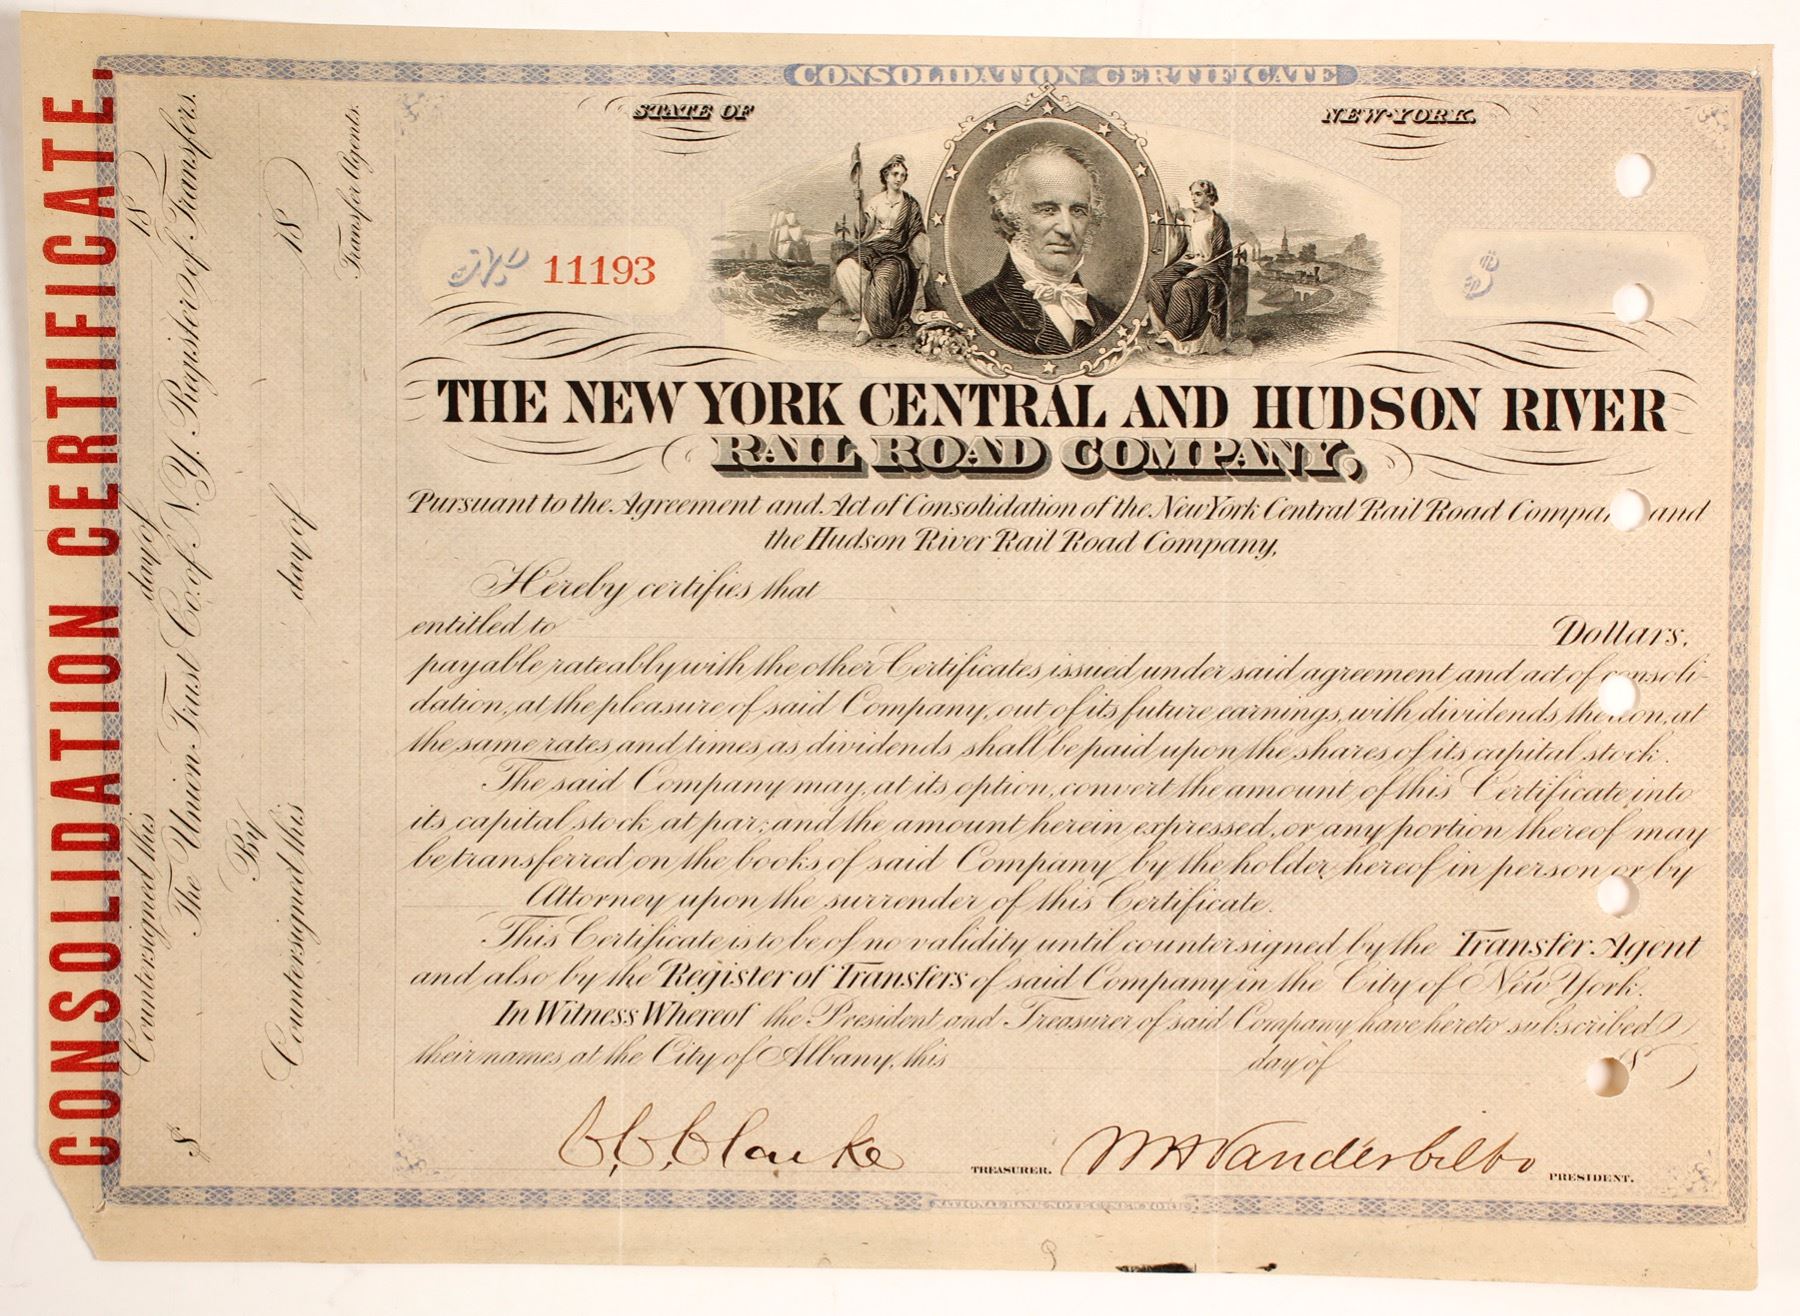 CONSOLIDATION CERTIFICATE
STATE OF
NEW-YORK.
No 11193
$
THE NEW YORK CENTRAL AND HUDSON RIVER
RAIL ROAD COMPANY,
Pursuant to the Agreement and Act of Consolidation of the New York Central Rail Road Compa and
the Hudson River Rail Road Company,
Hereby certifies that
entitled to Dollars,
payable rateably with the other Certificates issued under said agreement and act of consoli-
dation, at the pleasure of said Company, out of its future earnings, with dividends thereon, at
the same rates and times as dividends shall be paid upon the shares of its capital stock.
The said Company may, at its option, convert the amount of this Certificate into
its capital stock at par; and the amount herein expressed, or any portion thereof may
be transferred on the books of said Company by the holder hereof in person or by
Attorney upon the surrender of this Certificate.
This Certificate is to be of no validity until countersigned by the Transfer Agent
and also by the Register of Transfers of said Company in the City of New York.
In Witness Whereof the President and Treasurer of said Company have hereto subscribed
their names at the City of Albany, this day of 18
C.C. Clarke TREASURER. WH Vanderbilt PRESIDENT.
NATIONAL BANK NOTE CO. NEW YORK
CONSOLIDATION CERTIFICATE.
Countersigned this day of 18
The Union Trust Co. of N.Y. Register of Transfers.
By
Countersigned this day of 18
Transfer Agents.
$